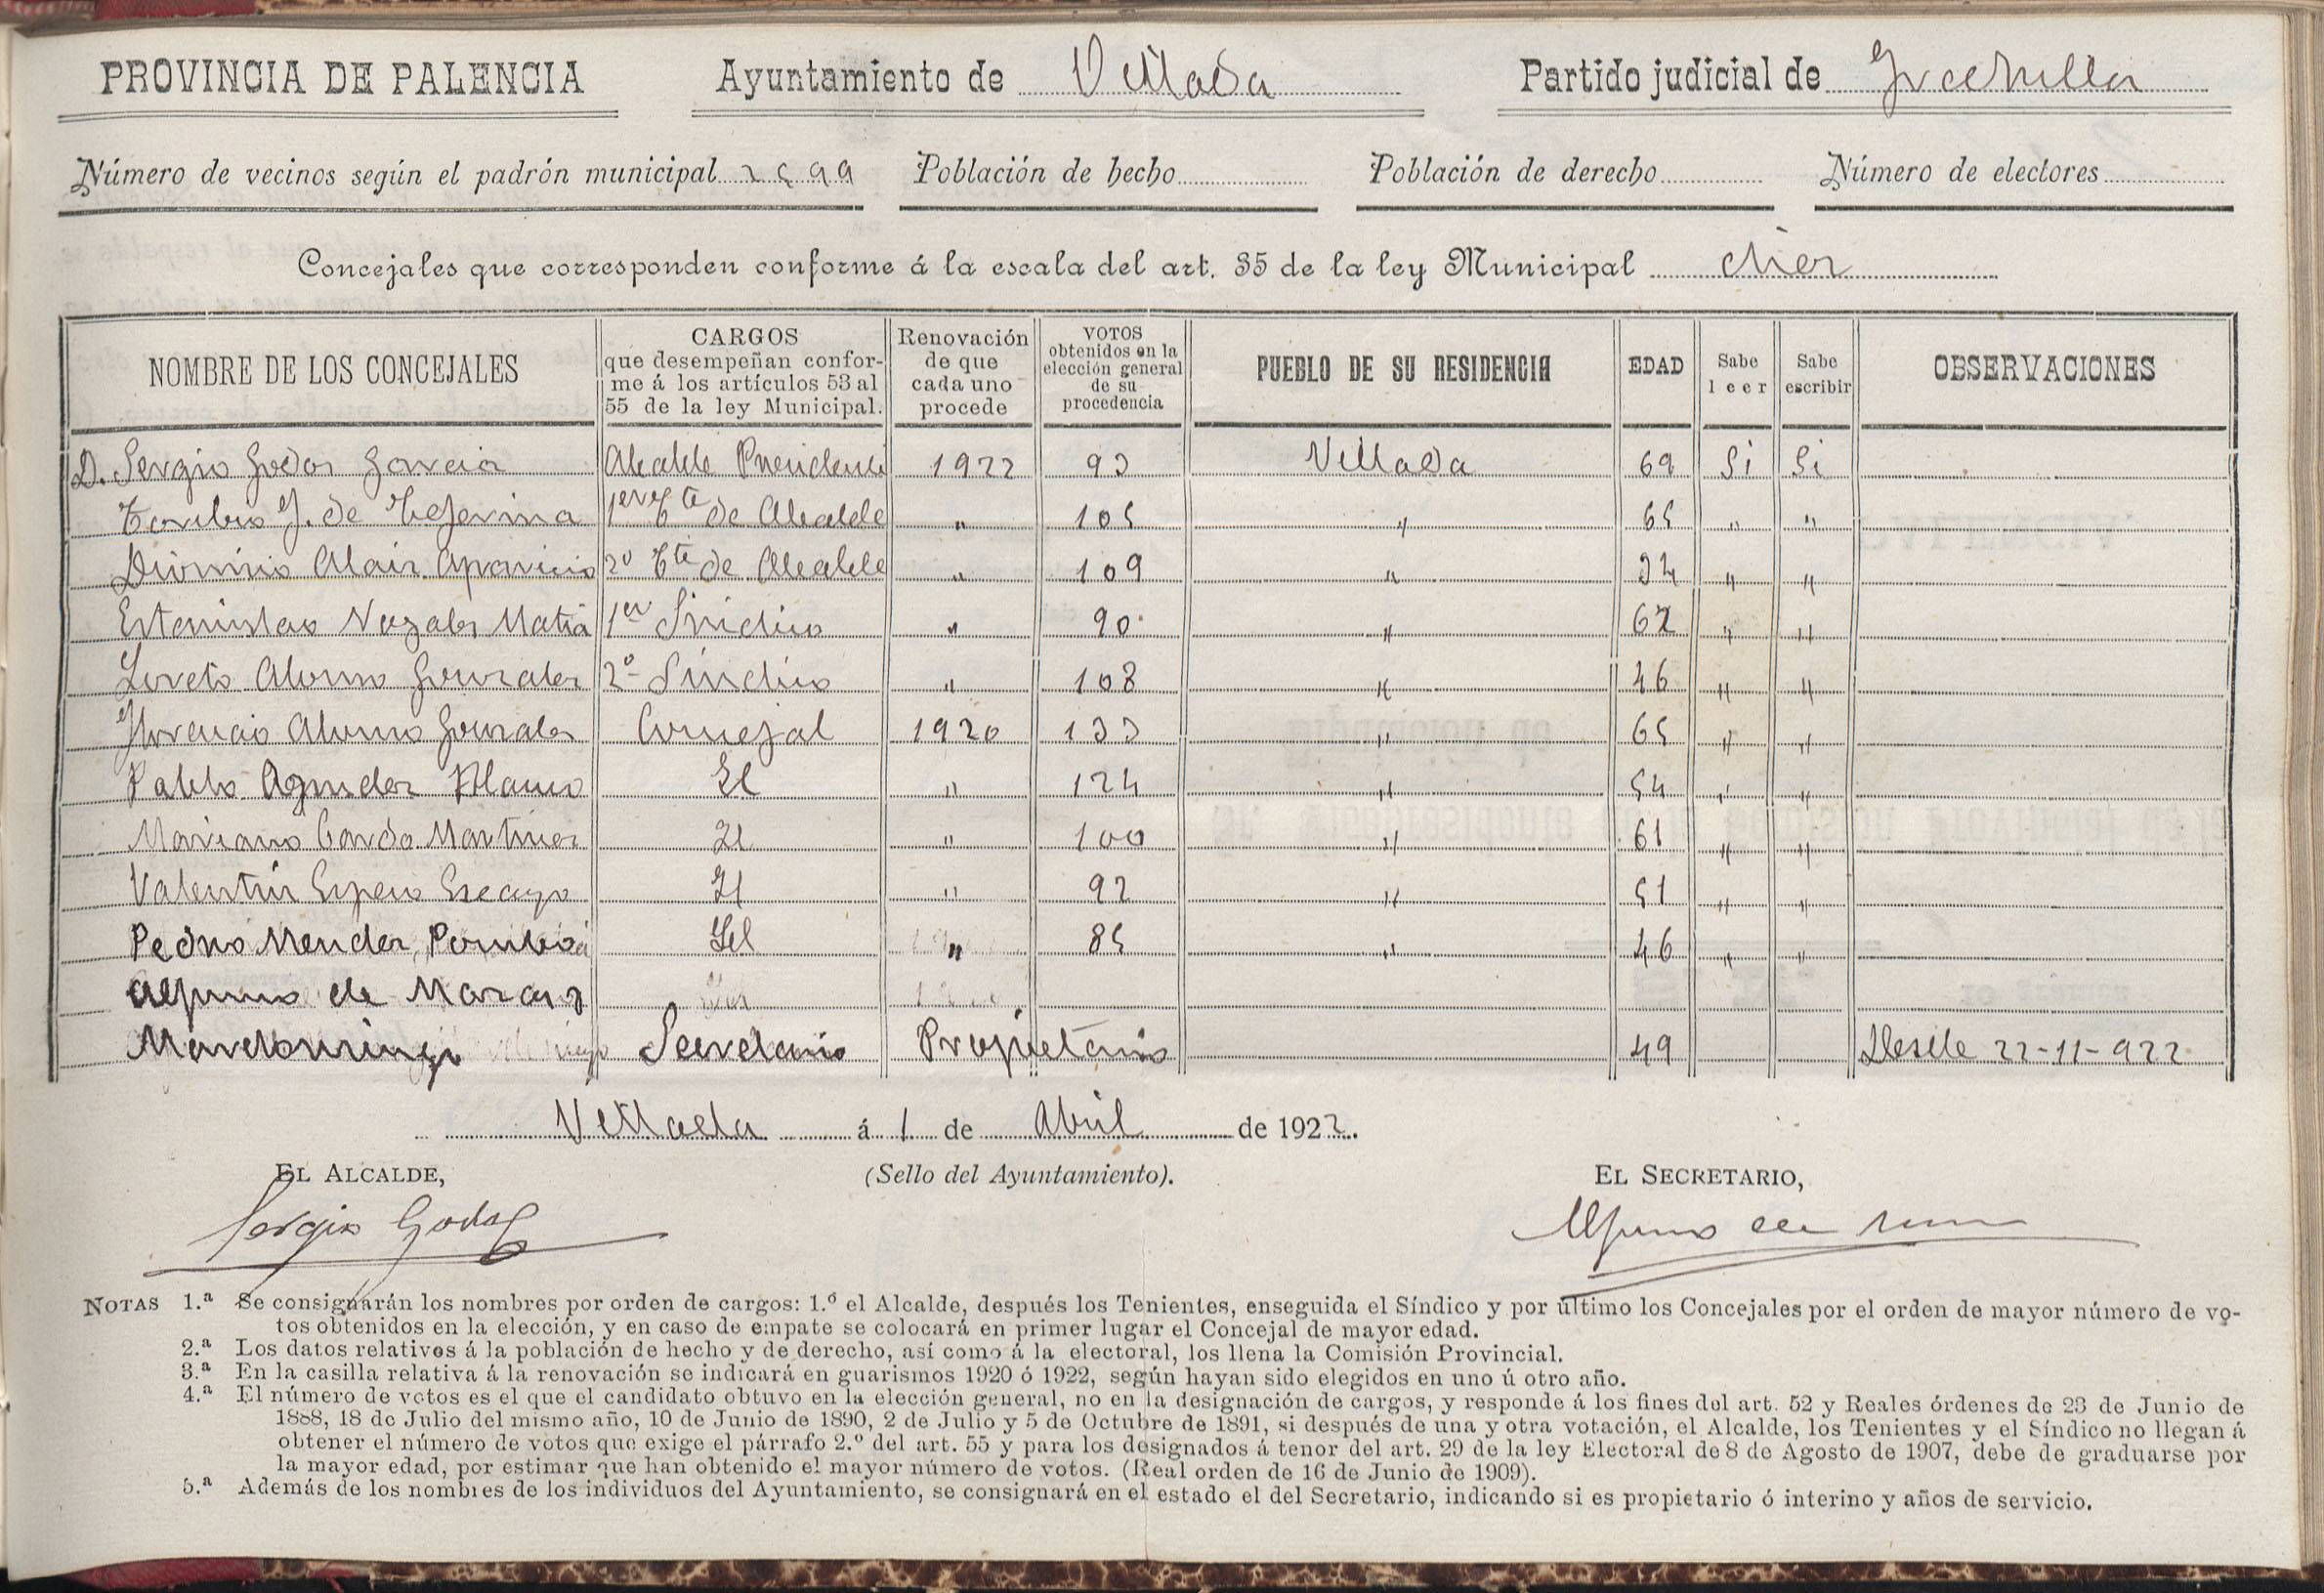 PROVINCIA DE PALENCIA Ayuntamiento de Villada Partido judicial de Frechilla
Número de vecinos según el padrón municipal 2599 Población de hecho Población de derecho Número de electores
Concejales que corresponden conforme á la escala del art. 35 de la ley Municipal diez
NOMBRE DE LOS CONCEJALES CARGOS que desempeñan confor- me á los artículos 53 al 55 de la ley Municipal. Renovación de que cada uno procede VOTOS obtenidos en la elección general de su procedencia PUEBLO DE SU RESIDENCIA EDAD Sabe leer Sabe escribir OBSERVACIONES
D. Sergio Godos Garcia Alcalde Presidente 1922 93 Villada 69 Si Si
Toribio G. de Tejerina 1er Tte de Alcalde " 105 " 65 " "
Dionisio Alaiz Aparicio 2º Tte de Alcalde " 109 " 34 " "
Estanislao Nozales Matia 1er Sindico " 90 " 62 " "
Loreto Alonso Gonzalez 2º Sindico " 108 " 46 " "
Florencio Alonso Gonzalez Concejal 1920 133 " 65 " "
Pablo Agundez Blanco Id " 124 " 54 " "
Mariano Pardo Martinez Id " 100 " 61 " "
Valentin Crespo Escayo Id " 92 " 51 " "
Pedro Mendez Pombo Id " 85 " 46 " "
Alfonso de
Mardomingo Secretario Propietario 49 Desde 22-11-922
Villada á 1 de Abril de 1922.
EL ALCALDE, (Sello del Ayuntamiento). EL SECRETARIO,
Sergio Godos Alfonso de
NOTAS 1.ª Se consignarán los nombres por orden de cargos: 1.º el Alcalde, después los Tenientes, enseguida el Síndico y por último los Concejales por el orden de mayor número de vo-
tos obtenidos en la elección, y en caso de empate se colocará en primer lugar el Concejal de mayor edad.
2.ª Los datos relativos á la población de hecho y de derecho, así como á la electoral, los llena la Comisión Provincial.
3.ª En la casilla relativa á la renovación se indicará en guarismos 1920 ó 1922, según hayan sido elegidos en uno ú otro año.
4.ª El número de votos es el que el candidato obtuvo en la elección general, no en la designación de cargos, y responde á los fines del art. 52 y Reales órdenes de 23 de Junio de
1888, 18 de Julio del mismo año, 10 de Junio de 1890, 2 de Julio y 5 de Octubre de 1891, si después de una y otra votación, el Alcalde, los Tenientes y el Síndico no llegan á
obtener el número de votos que exige el párrafo 2.º del art. 55 y para los designados á tenor del art. 29 de la ley Electoral de 8 de Agosto de 1907, debe de graduarse por
la mayor edad, por estimar que han obtenido el mayor número de votos. (Real orden de 16 de Junio de 1909).
5.ª Además de los nombres de los individuos del Ayuntamiento, se consignará en el estado el del Secretario, indicando si es propietario ó interino y años de servicio.